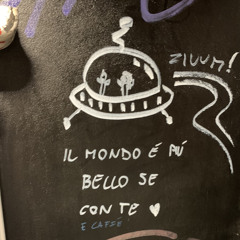 ZIUUM!
IL MONDO É PIÚ
BELLO SE
CON TE ♥
E CAFFÈ